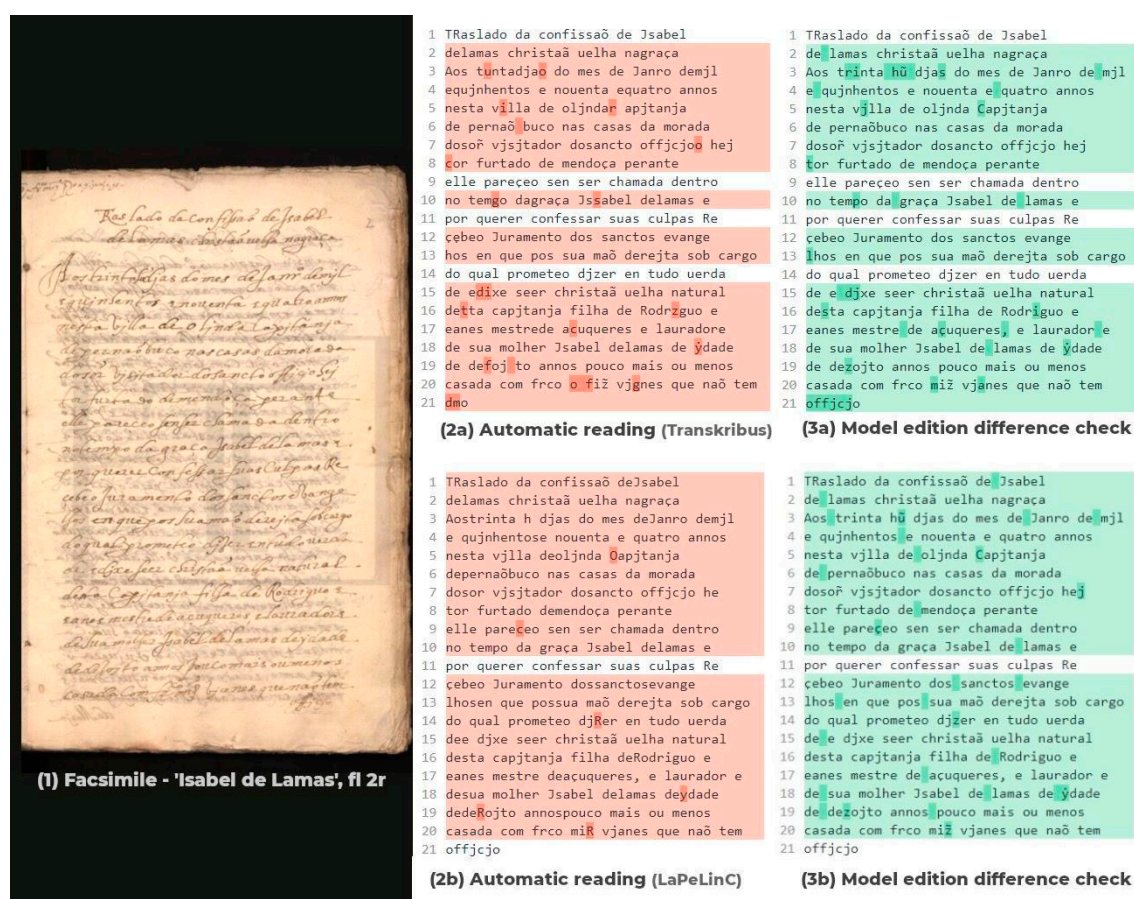 (1) Facsimile - 'Isabel de Lamas', fl 2r
1 TRaslado da confissaõ de Jsabel
2 delamas christaã uelha nagraça
3 Aos tuntadjao do mes de Janro demjl
4 equjnhentos e nouenta equatro annos
5 nesta villa de oljndar apjtanja
6 de pernaõ buco nas casas da morada
7 dosor̃ vjsjtador dosancto offjcjoo hej
8 cor furtado de mendoça perante
9 elle pareçeo sen ser chamada dentro
10 no temgo dagraça Jssabel delamas e
11 por querer confessar suas culpas Re
12 çebeo Juramento dos sanctos evange
13 hos en que pos sua maõ derejta sob cargo
14 do qual prometeo djzer en tudo uerda
15 de edixe seer christaã uelha natural
16 detta capjtanja filha de Rodrzguo e
17 eanes mestrede acuqueres e lauradore
18 de sua molher Jsabel delamas de ẏdade
19 de defoj to annos pouco mais ou menos
20 casada com frco o fiz̃ vjgnes que naõ tem
21 dmo
(2a) Automatic reading (Transkribus)
1 TRaslado da confissaõ de Jsabel
2 de lamas christaã uelha nagraça
3 Aos trinta hũ djas do mes de Janro de mjl
4 e qujnhentos e nouenta e quatro annos
5 nesta vjlla de oljnda Capjtanja
6 de pernaõbuco nas casas da morada
7 dosor̃ vjsjtador dosancto offjcjo hej
8 tor furtado de mendoça perante
9 elle pareçeo sen ser chamada dentro
10 no tempo da graça Jsabel de lamas e
11 por querer confessar suas culpas Re
12 çebeo Juramento dos sanctos evange
13 lhos en que pos sua maõ derejta sob cargo
14 do qual prometeo djzer en tudo uerda
15 de e djxe seer christaã uelha natural
16 desta capjtanja filha de Rodriguo e
17 eanes mestre de açuqueres, e laurador e
18 de sua molher Jsabel de lamas de ẏdade
19 de dezojto annos pouco mais ou menos
20 casada com frco miz̃ vjanes que naõ tem
21 offjcjo
(3a) Model edition difference check
1 TRaslado da confissaõ deJsabel
2 delamas christaã uelha nagraça
3 Aostrinta h djas do mes deJanro demjl
4 e qujnhentose nouenta e quatro annos
5 nesta vjlla deoljnda Oapjtanja
6 depernaõbuco nas casas da morada
7 dosor vjsjtador dosancto offjcjo he
8 tor furtado demendoça perante
9 elle pareceo sen ser chamada dentro
10 no tempo da graça Jsabel delamas e
11 por querer confessar suas culpas Re
12 çebeo Juramento dossanctosevange
13 lhosen que possua maõ derejta sob cargo
14 do qual prometeo djRer en tudo uerda
15 dee djxe seer christaã uelha natural
16 desta capjtanja filha deRodriguo e
17 eanes mestre deaçuqueres, e laurador e
18 desua molher Jsabel delamas deydade
19 dedeRojto annospouco mais ou menos
20 casada com frco miR vjanes que naõ tem
21 offjcjo
(2b) Automatic reading (LaPeLinC)
1 TRaslado da confissaõ de Jsabel
2 de lamas christaã uelha nagraça
3 Aos trinta hũ djas do mes de Janro de mjl
4 e qujnhentos e nouenta e quatro annos
5 nesta vjlla de oljnda Capjtanja
6 de pernaõbuco nas casas da morada
7 dosor̃ vjsjtador dosancto offjcjo hej
8 tor furtado de mendoça perante
9 elle pareçeo sen ser chamada dentro
10 no tempo da graça Jsabel de lamas e
11 por querer confessar suas culpas Re
12 çebeo Juramento dos sanctos evange
13 lhos en que pos sua maõ derejta sob cargo
14 do qual prometeo djzer en tudo uerda
15 de e djxe seer christaã uelha natural
16 desta capjtanja filha de Rodriguo e
17 eanes mestre de açuqueres, e laurador e
18 de sua molher Jsabel de lamas de ẏdade
19 de dezojto annos pouco mais ou menos
20 casada com frco miz̃ vjanes que naõ tem
21 offjcjo
(3b) Model edition difference check